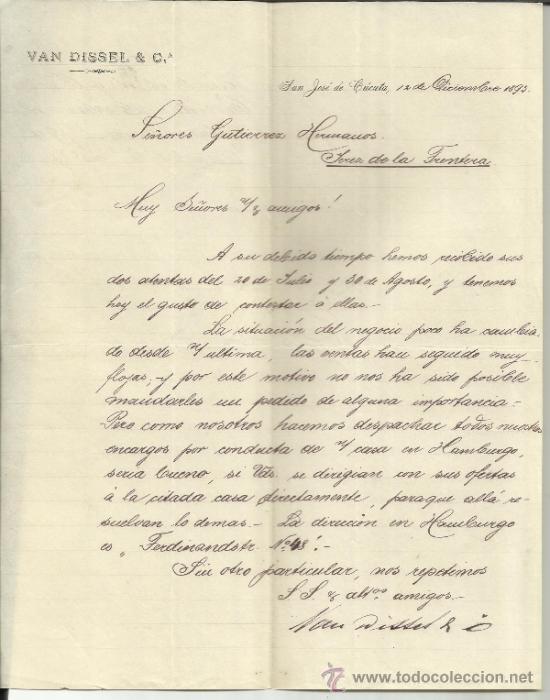 VAN DISSEL & C.ª
San José de Cúcuta, 12 de Diciembre 1893.
Señores Gutierrez Hermanos.
Jerez de la Frontera
Muy Señores n/ y amigos!
A su debido tiempo hemos recibido sus
dos atentas del 20 de Julio y 30 de Agosto, y tenemos
hoy el gusto de contestar á ellas.-
La situación del negocio poco ha cambia-
do desde n/ ultima, las ventas han seguido muy
flojas,- y por este motivo no nos ha sido posible
mandarles un pedido de alguna importancia.-
Pero como nosotros hacemos despachar todos nuestros
encargos por conducta de n/ casa en Hamburgo,
seria bueno, si Vds. se dirigian con sus ofertas
á la citada casa directamente, paraque allá re-
suelvan lo demas.- La direccion en Hamburgo
es „ Ferdinandstr. No. 48".-
Sin otro particular, nos repetimos
S.S. y attos amigos.-
Van Dissel & Co
www.todocoleccion.net